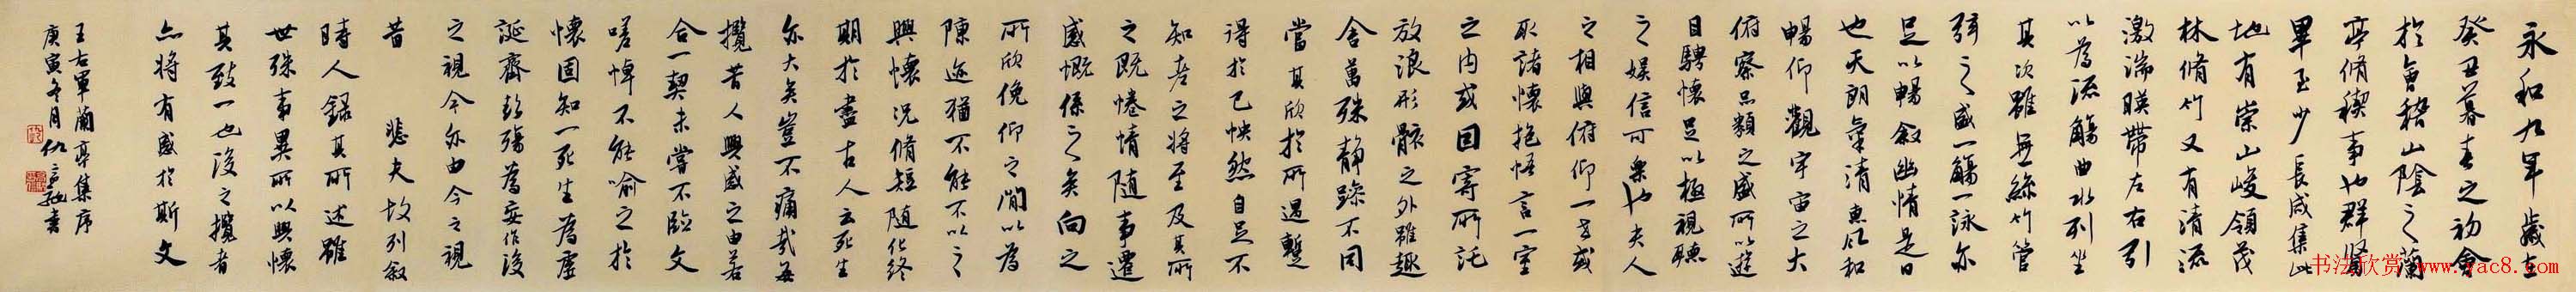 永和九年歲在
癸丑暮春之初會
於會稽山陰之蘭
亭脩禊事也群賢
畢至少長咸集此
地有崇山峻領茂
林脩竹又有清流
激湍暎帶左右引
以為流觴曲水列坐
其次雖無絲竹管
弦之盛一觴一詠亦
足以暢敘幽情是日
也天朗氣清惠風和
暢仰觀宇宙之大
俯察品類之盛所以遊
目騁懷足以極視聽
之娛信可樂也夫人
之相與俯仰一世或
取諸懷抱悟言一室
之內或因寄所託
放浪形骸之外雖趣
舍萬殊靜躁不同
當其欣於所遇暫
得於己怏然自足不
知老之將至及其所
之既惓情隨事遷
感慨係之矣向之
所欣俛仰之間以為
陳迹猶不能不以之
興懷況脩短隨化終
期於盡古人云死生
亦大矣豈不痛哉每
攬昔人興感之由若
合一契未嘗不臨文
嗟悼不能喻之於
懷固知一死生為虛
誕齊彭殤為妄作後
之視今亦由今之視
昔 悲夫故列敘
時人錄其所述雖
世殊事異所以興懷
其致一也後之攬者
亦將有感於斯文
王右軍蘭亭集序
庚寅冬月 書
书法欣赏 www.yac8.com